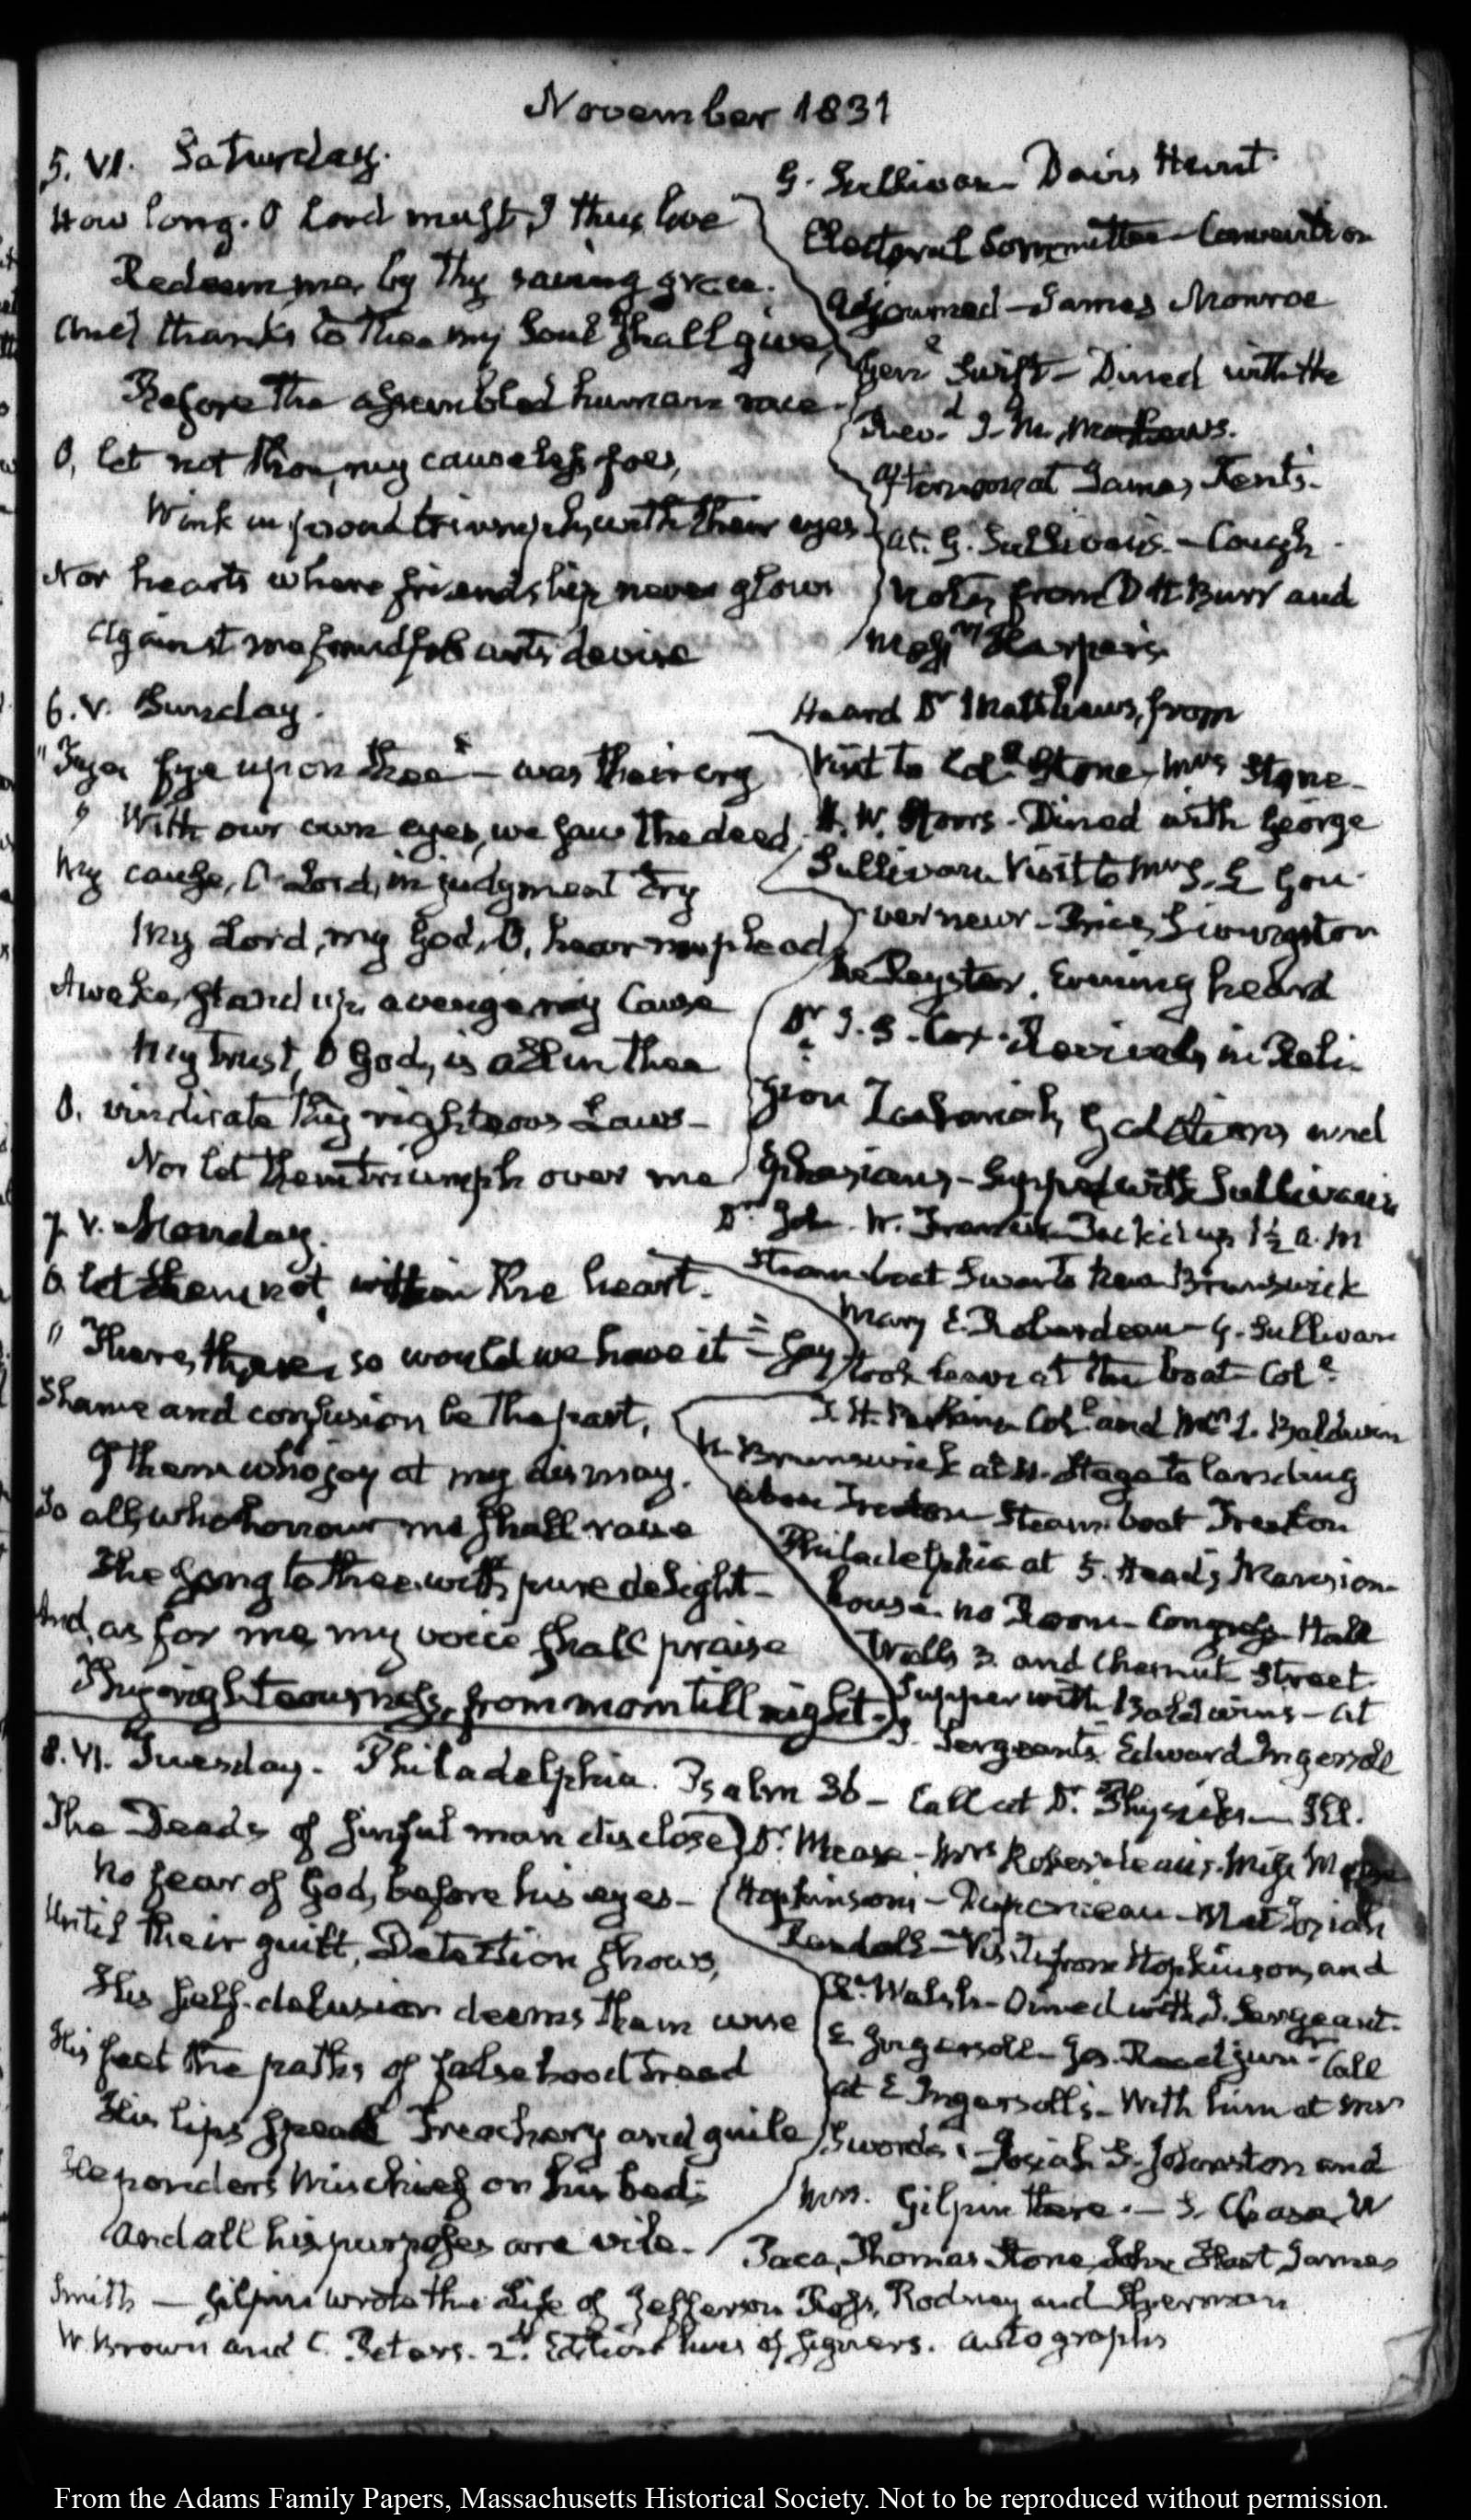 November 1831
5. VI. Saturday.
How long, O Lord must I thus live
Redeem me by thy saving grace.
And thanks to thee my Soul shall give,
Before the assembled human race.
O, let not thou, my causeless foes,
Wink in proud triumph, with their eyes
Nor hearts where friendship never glows
Against me fraudful arts devise
G. Sullivan Davis Hunt
Electoral Committee Convention
adjourned — James Monroe
Genl Swift — Dined with the
Revd J. M. Mathews.
Afternoon at James Kent's.
at G. Sullivan's — Cough
Notes from D H Burr and
Messrs Harpers
6. V. Sunday.
"Fye, fye upon thee" — was their cry
" With our own eyes, we saw the deed
My cause, O Lord, in judgment try
My Lord, my God, O, hear me plead
Awake, stand up, avenge my Cause
My trust, O God, is all in thee
O, vindicate thy righteous Laws —
Nor let them triumph over me
Heard Dr Matthews, from
Visit to Coll Stone, Mrs Stone —
H. W. Storrs — Dined with George
Sullivan Visit to Mrs S. L Gou-
verneur — Price, Livingston
De Reyster. Evening heard
Dr S. H. Cox. Revivals in Reli-
gion Zechariah, Galatians and
Ephesians — Supped with Sullivan's
7. V. Monday.
O let them not, within the heart.
" There, there, so would we have it" — Say
Shame and confusion be the part,
Of them who joy at my dismay.
So all, who honour me shall raise
The Song to thee, with pure delight —
And, as for me, my voice shall praise
Thy righteousness, from morn till night.
Dr John W. Francis Packed up 1½ a.m
Steam boat Swan to New Brunswick
Mary E. Roberdeau — G. Sullivan
took leave at the boat — Coll
T. H. Perkins Coll and Mrs L. Baldwin
N. Brunswick at 11. Stage to landing
above Trenton Steam boat Trenton
Philadelphia at 5. Head's Mansion-
house. no Room — Congress Hall
Wells 3. and Chesnut Street.
Supper with Baldwins — at
J. Sergeant's. Edward Ingersoll
8. VI. Tuesday. Philadelphia. Psalm 36 — Call at Dr. Physick's — Ill.
The Deeds of sinful man disclose
No fear of God, before his eyes —
Until their guilt, Detection shows,
His self-delusion deems them wise
His feet the paths of falsehood tread
His lips speak Treachery and guile
He ponders Mischief on his bed;
And all his purposes are vile.
Dr. Mease — Mrs Roberdeau's. Miss
Hopkinson — Duponceau — Met Josiah
Randall — Visits from Hopkinson, and
R. Walsh — Dined with J. Sergeant.
E Ingersoll — Jos. Reed junr — Call
at E Ingersoll's — With him at Mrs
Swords — Josiah S. Johnston and
Mrs. Gilpin there. — S. Chase, W
Paca, Thomas Stone, John Hart, James
Smith — Gilpin wrote the Life of Jefferson Ross, Rodney and Sherman
W. Brown and C. Peters. 2d. Edition lives of Signers. autographs
From the Adams Family Papers, Massachusetts Historical Society. Not to be reproduced without permission.